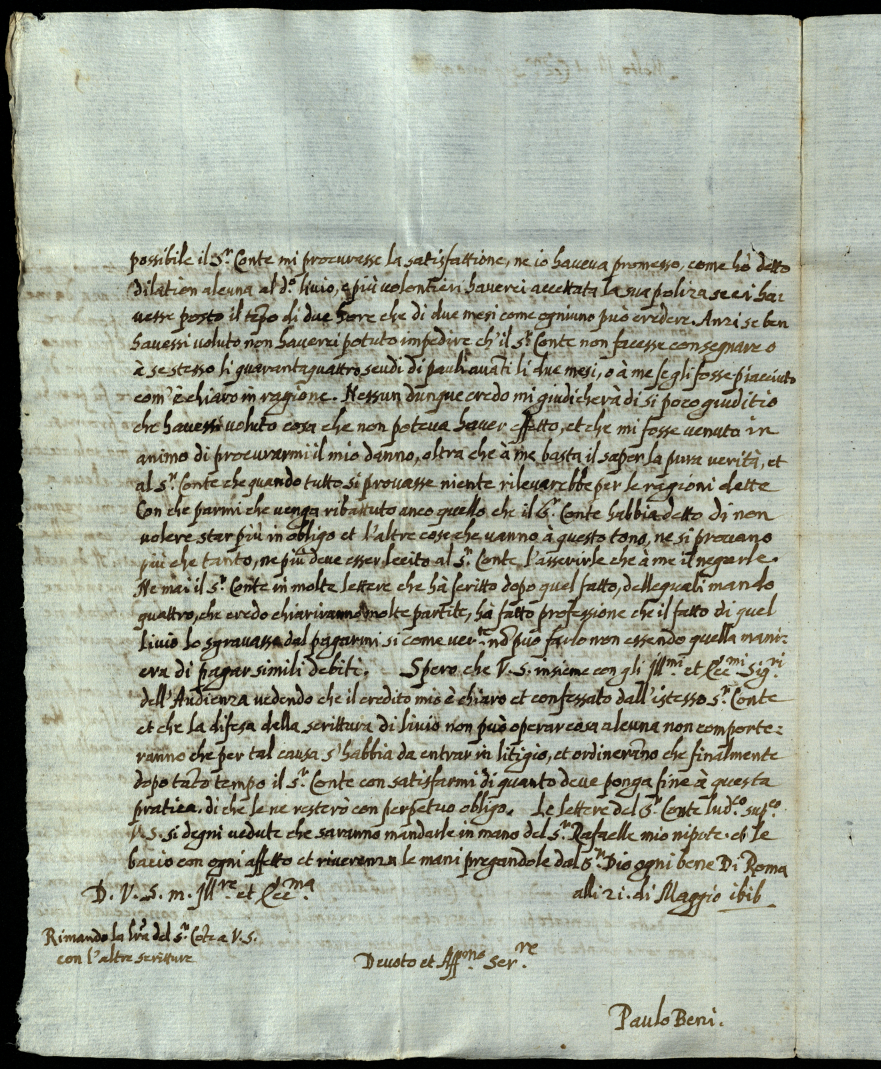 possibile il S.r Conte mi procurasse la satisfattione, ne io haveva promesso, come hò detto
dilation alcuna al d.o livio, e più volontieri haverei accettata la sua poliza se ei ha:
vesse posto il tẽpo di due hore che di due mesi come ogniuno può credere. Anzi se ben
havessi voluto non haverei potuto impedire ch'il S.r Conte non facesse consegnare o
à se stesso li quarantaquattro scudi di pauli avãti li due mesi, o à me se gli fosse piaciuto
com'è chiaro in ragione. Nessun dunque credo mi giudicherà di si poco giuditio
che havessi voluto cosa che non poteva haver effetto, et che mi fosse venuto in
animo di procurarmi il mio danno, oltra che à me basta il saper la pura verità, et
al S.r Conte che quando tutto si provasse niente rilevarebbe per le ragioni dette
Con che parmi che venga ribattuto anco quello che il S.r Conte habbia detto di non
volere star più in obligo et l'altre cose che vanno à questo tono, ne si provano
più che tanto, ne più deve esser lecito al S.r Conte l'asserirle che à me il negarle.
Ne mai il S.r Conte in molte lettere che hà scritto dopo quel fatto, delle quali mando
quattro, che credo chiariranno molte partite, hà fatto professione che il fatto di quel
Livio lo sgravasse dal pagarmi si come ver.te nõ può farlo non essendo quella mani:
era di pagar simili debiti. Spero che V. S. insieme con gli Ill.mi et Ecc.mi Sig.ri
dell'Audienza vedendo che il credito mio è chiaro et confessato dall'istesso S.r Conte
et che la difesa della scrittura di Livio non può operar cosa alcuna non comporte:
ranno che per tal causa s'habbia da entrar in litigio, et ordinerãno che finalmente
dopo tãto tempo il S.r Conte con satisfarmi di quanto deve ponga fine à questa
pratica, di che le ne resterò con perpetuo obligo. Le lettere del S.r Conte lud.co sup.co
V. S. si degni vedute che saranno mandarle in mano del S.r Rafaelle mio nipote. et le
bacio con ogni affetto et riverenza le mani pregandole dal S.r Dio ogni bene Di Roma
D. V. S. m. Ill.re et Ecc.ma alli 21. di Maggio
Rimando la lr̃a del S.r Cõte a V. S.
con l'altre scritture
Devoto et Aff.mo Ser.re
Paulo Beni.